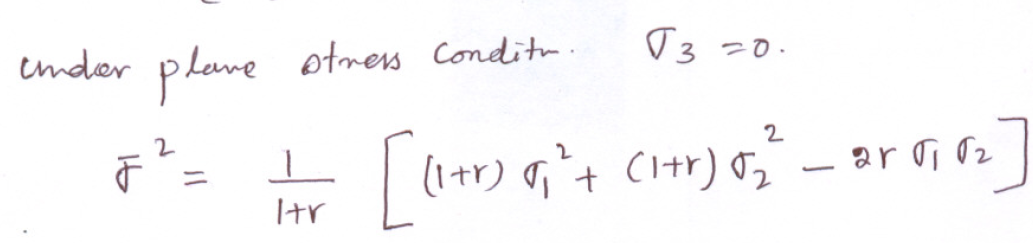 under plane stress conditn. σ3 = 0.
σ̄² = 1/(1+r) [(1+r) σ1² + (1+r) σ2² − 2r σ1 σ2]